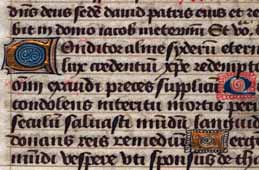 dñs deus sedẽ dauid patris eius et re
bit in domo iacob meternũ. Et
onditor alme syderũ etern
lux credentiũ xp̃e redempto
oĩm exaudi preces supplicũ
condolens interitu mortis peri
seculũ saluasti mũdũ
donans reis remediũ erge
mũdi vespere vti sponsus de tha